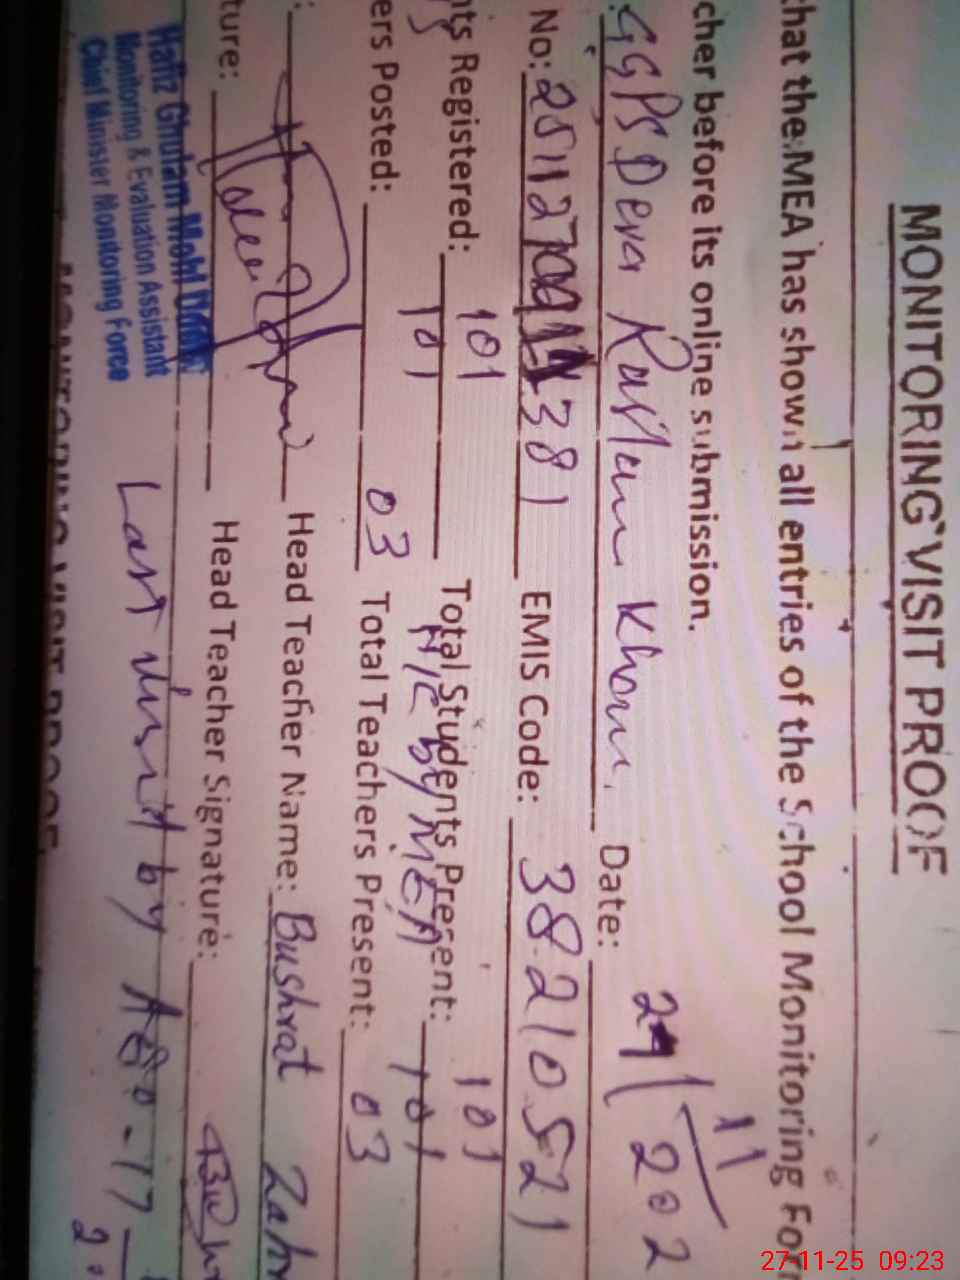 MONITORING VISIT PROOF
that the MEA has shown all entries of the School Monitoring For
cher before its online submission.
GGPS Dera Rustam Khan. Date: 11 202
No: EMIS Code: 38210521
101 101
nts Registered: 101 Total Students Present: 101
H/C by MEA
ers Posted: 03 Total Teachers Present: 03
Head Teacher Name: Bushrat Zahr
ture: Head Teacher Signature:
Hafiz Ghulam Mohi
Monitoring & Evaluation Assistant
Chief Minister Monitoring Force
Last visit by AEO-17
MONITORING VISIT PROOF
27-11-25 09:23